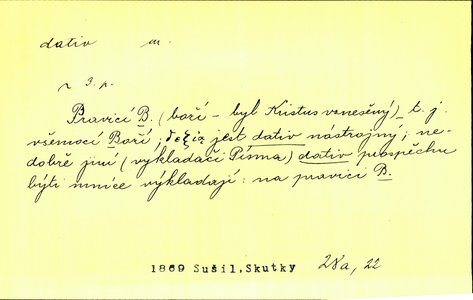 dativ m.
v 3. p.
Pravicí B. (boží – byl Kristus vznesěný) t. j.
všemocí Boží; δεξιᾷ jest dativ nástrojný; ne-
dobře jiní (vykladači Písma) dativ prospěchu
býti mníce vykládají: na pravici B.
1869 Sušil, Skutky 28a, 22